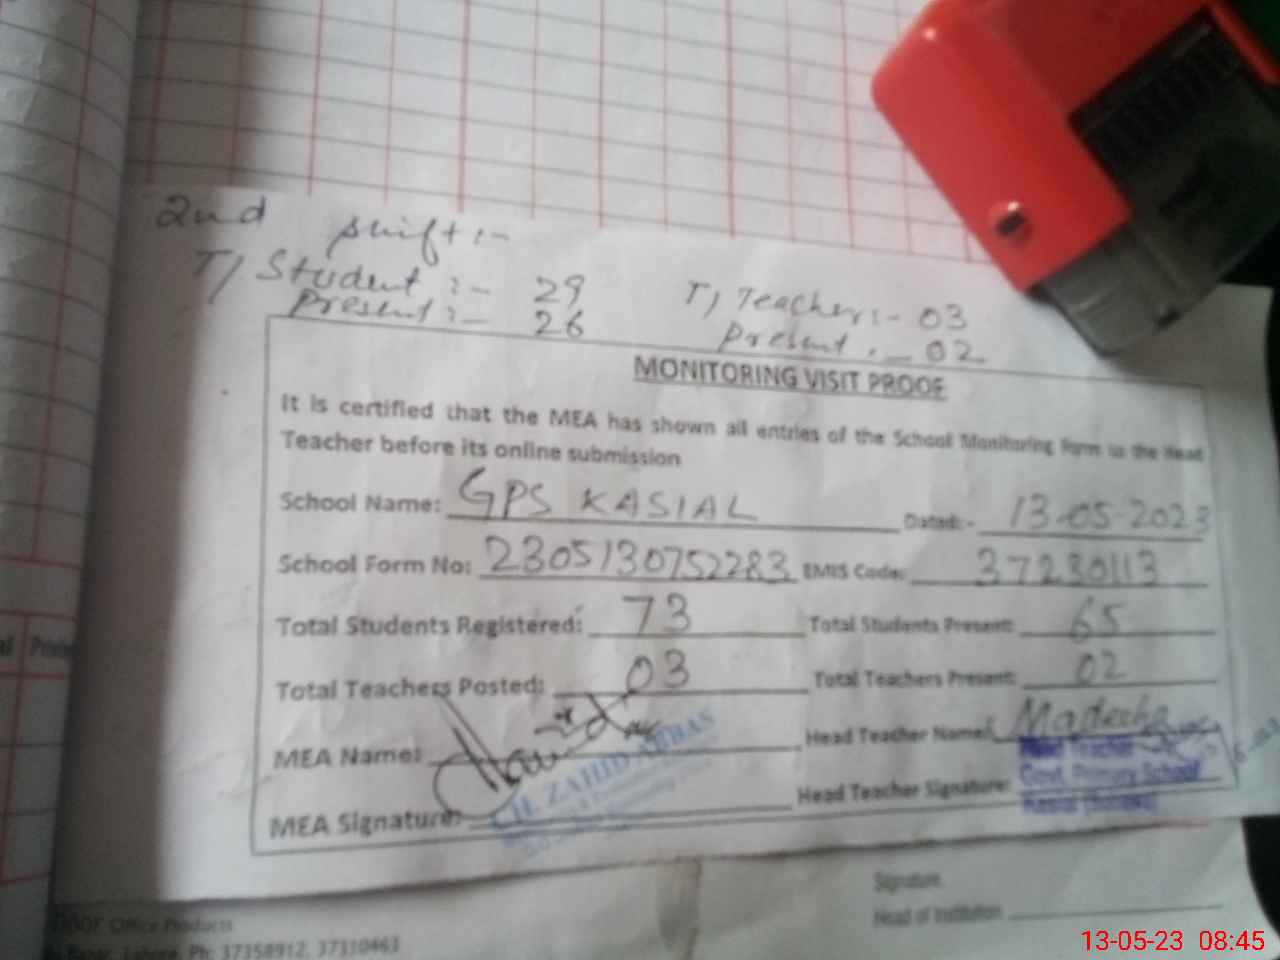 2nd shift:-
T/ Student :- 29 T/ Teacher:- 03
Present:- 26 Present:- 02
MONITORING VISIT PROOF
It is certified that the MEA has shown all entries of the School Monitoring Form to the Head
Teacher before its online submission
School Name: GPS KASIAL Dated:- 13-05-2023
School Form No: 2305130752283 EMIS Code: 37230113
Total Students Registered: 73 Total Students Present: 65
Total Teachers Posted: 03 Total Teachers Present: 02
MEA Name: Head Teacher Name: Madeeha
CH. ZAHID
Head Teacher
Govt. Primary School
Kasial
MEA Signature: Head Teacher Signature:
Signature
Head of Institution
Office Products
Lahore. Ph: 37358912, 37310463
13-05-23 08:45